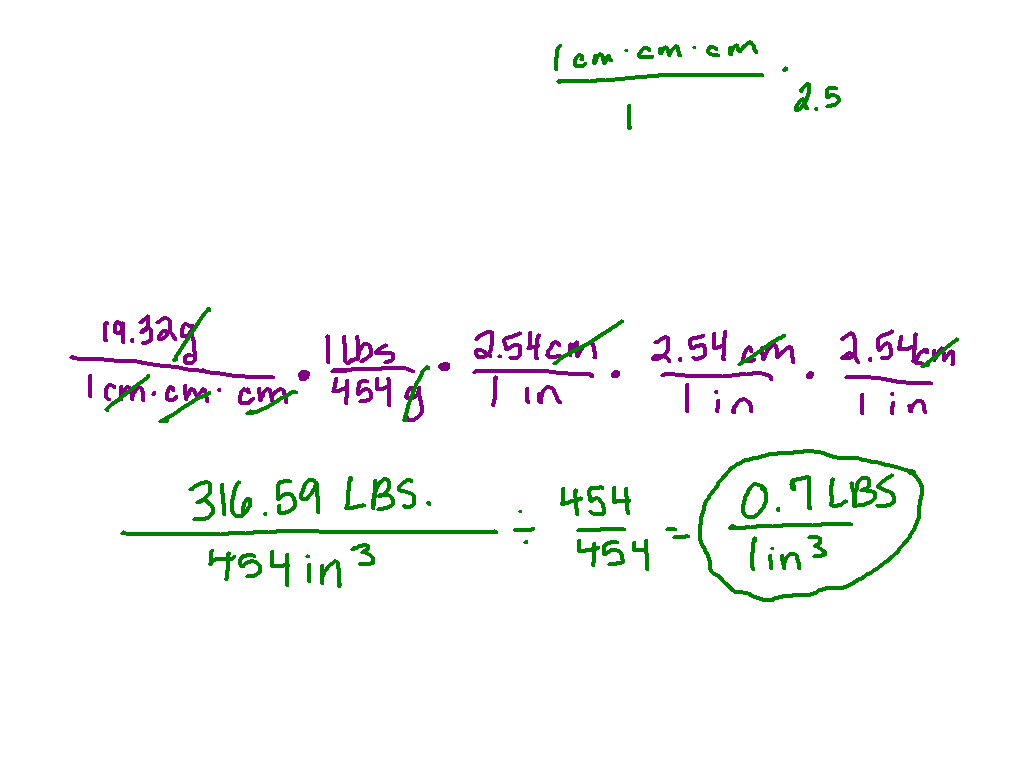 1 cm · cm · cm
1
· 2.5
19.32g / 1 cm · cm · cm · 1 lbs / 454 g · 2.54 cm / 1 in · 2.54 cm / 1 in · 2.54 cm / 1 in
316.59 LBS. / 454 in³ ÷ 454 / 454 = 0.7 LBS / 1 in³